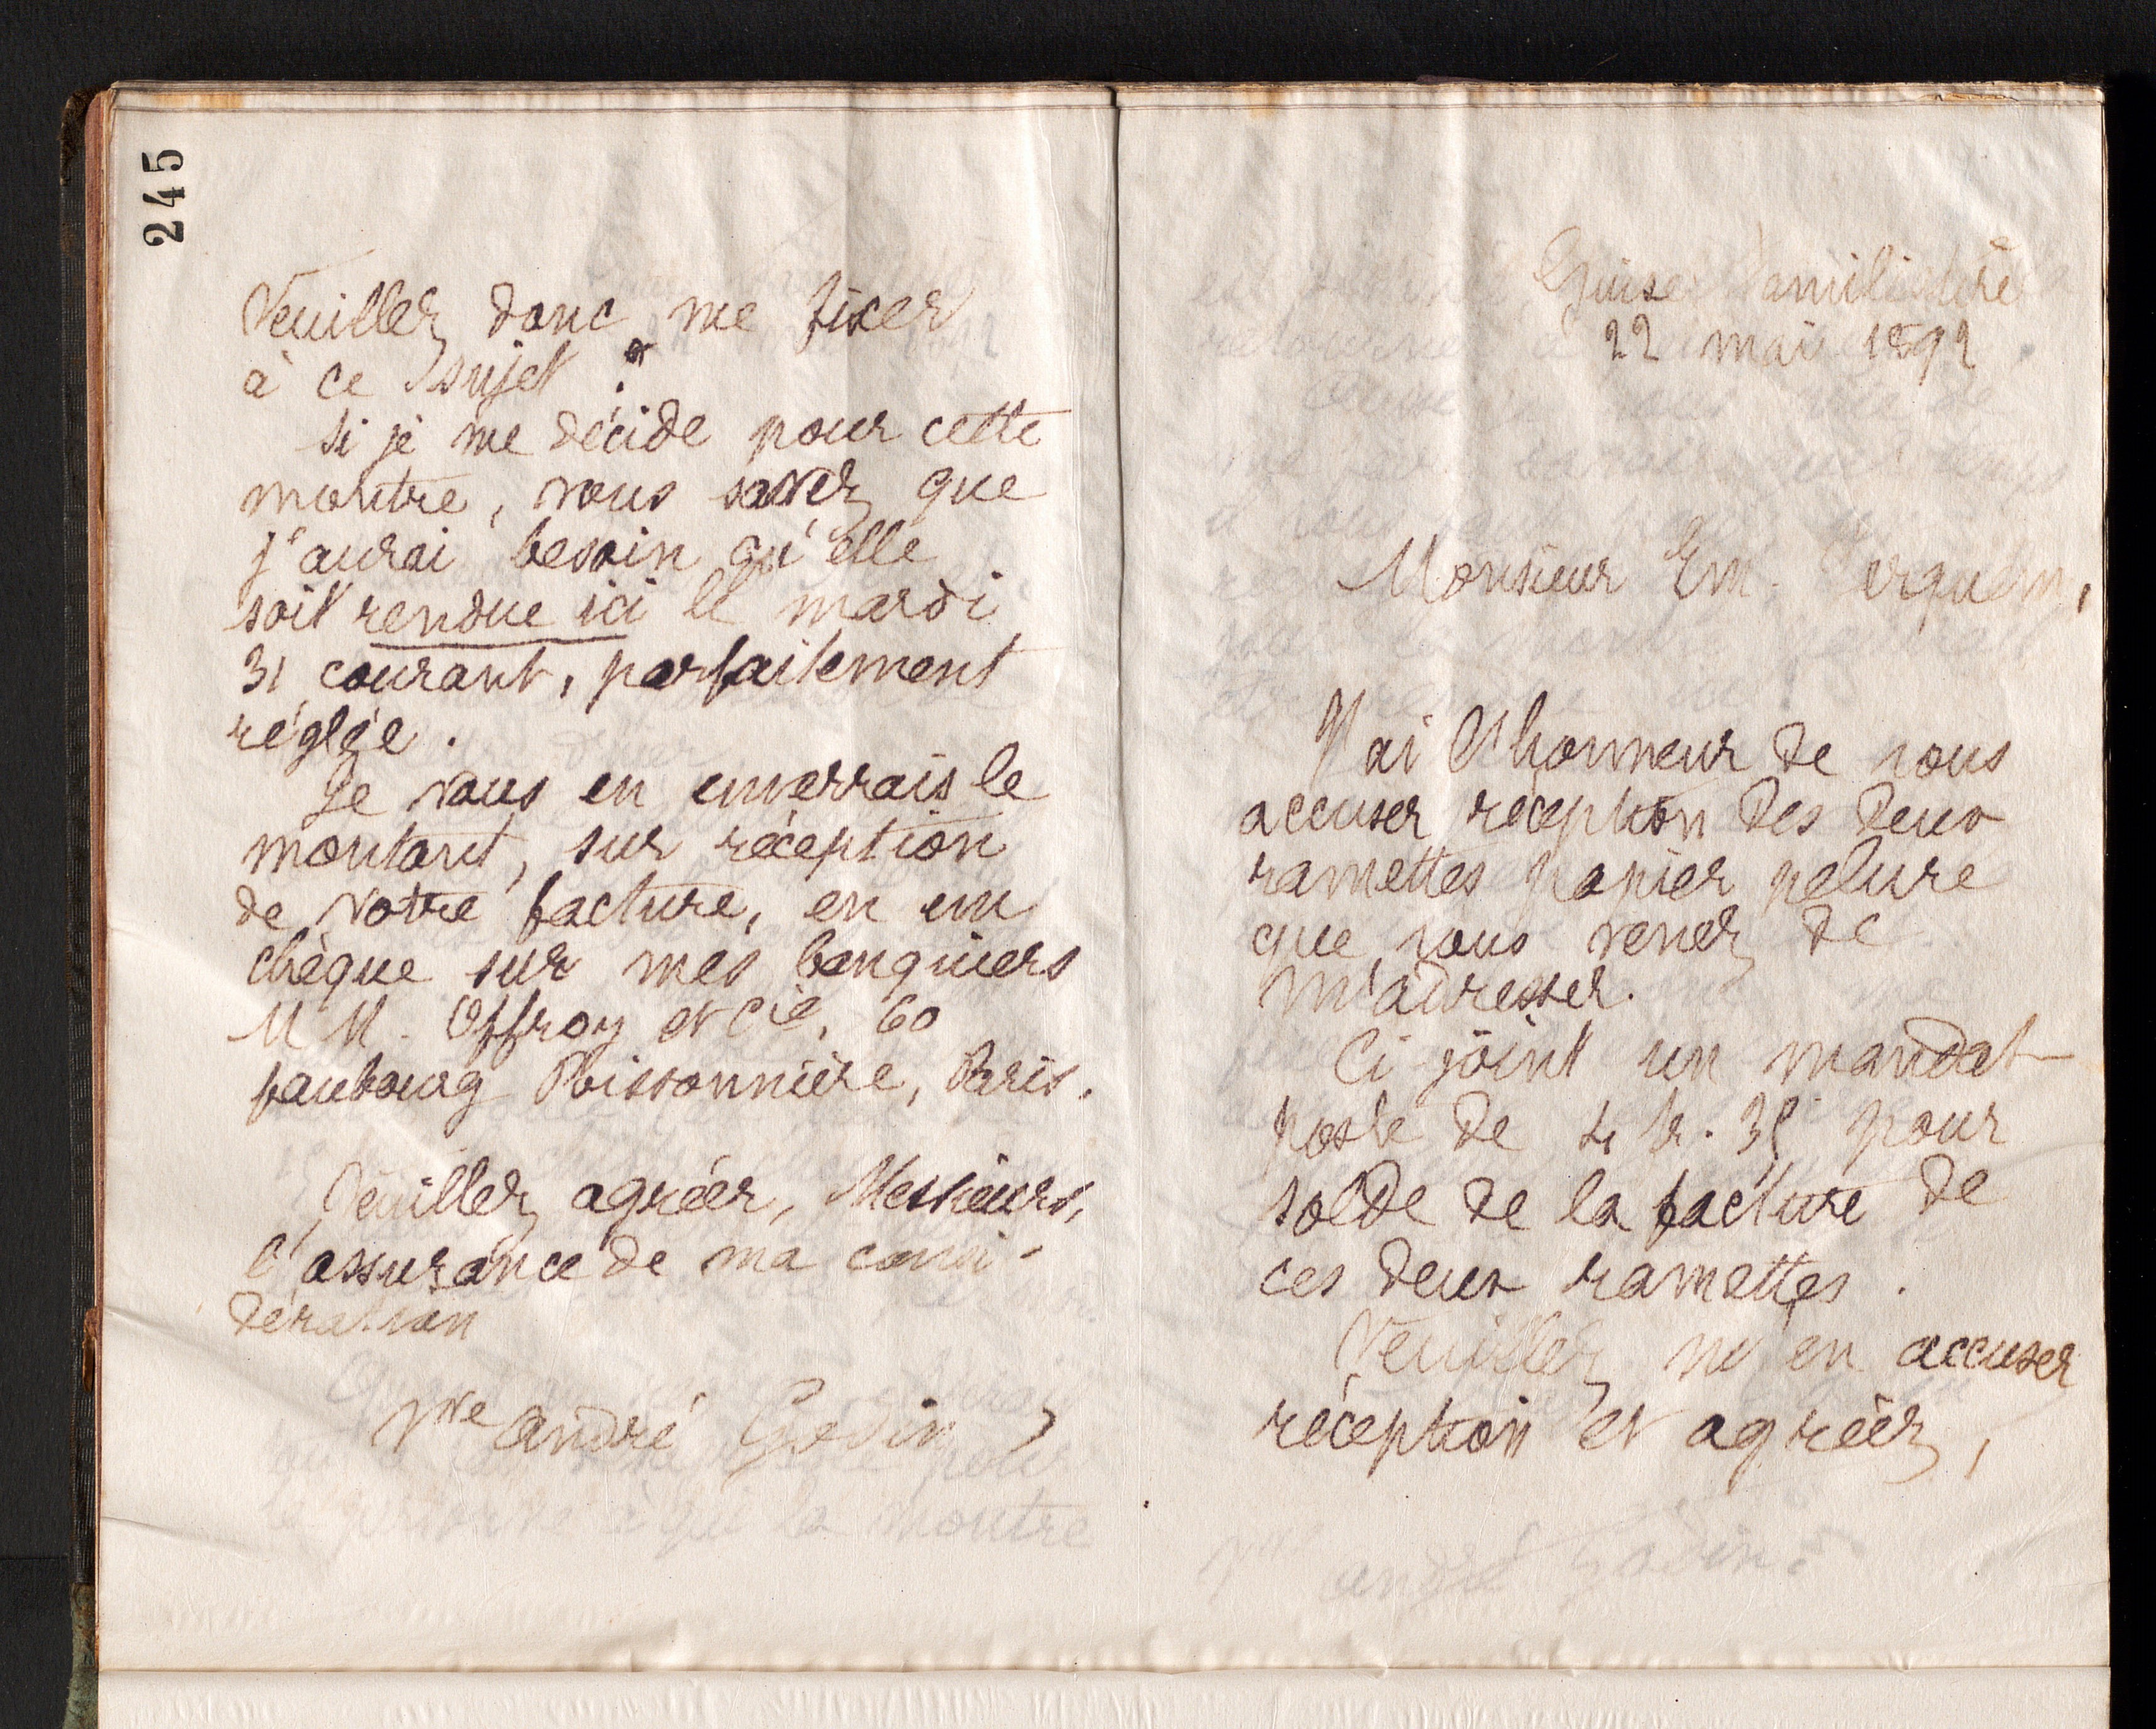 245
Veuillez donc me fixer
à ce sujet.
Si je me décide pour cette
montre, vous savez que
j'aurai besoin qu'elle
soit rendue ici le mardi
31 courant, parfaitement
réglée.
Je vous en enverrais le
montant, sur réception
de votre facture, en un
chèque sur mes banquiers
MM. Offroy et Cie, 60
faubourg Poissonnière, Paris.
Veuillez agréer, Messieurs,
l'assurance de ma consi-
dération
Vve André Godin
Guise Familistère
22 mai 1892
Monsieur Em.
J'ai l'honneur de vous
accuser réception des deux
ramettes papier pelure
que vous venez de
m'adresser.
Ci-joint un mandat
poste de 4 fr. 35 pour
solde de la facture de
ces deux ramettes.
Veuillez m'en accuser
réception et agréer,
Vve André Godin